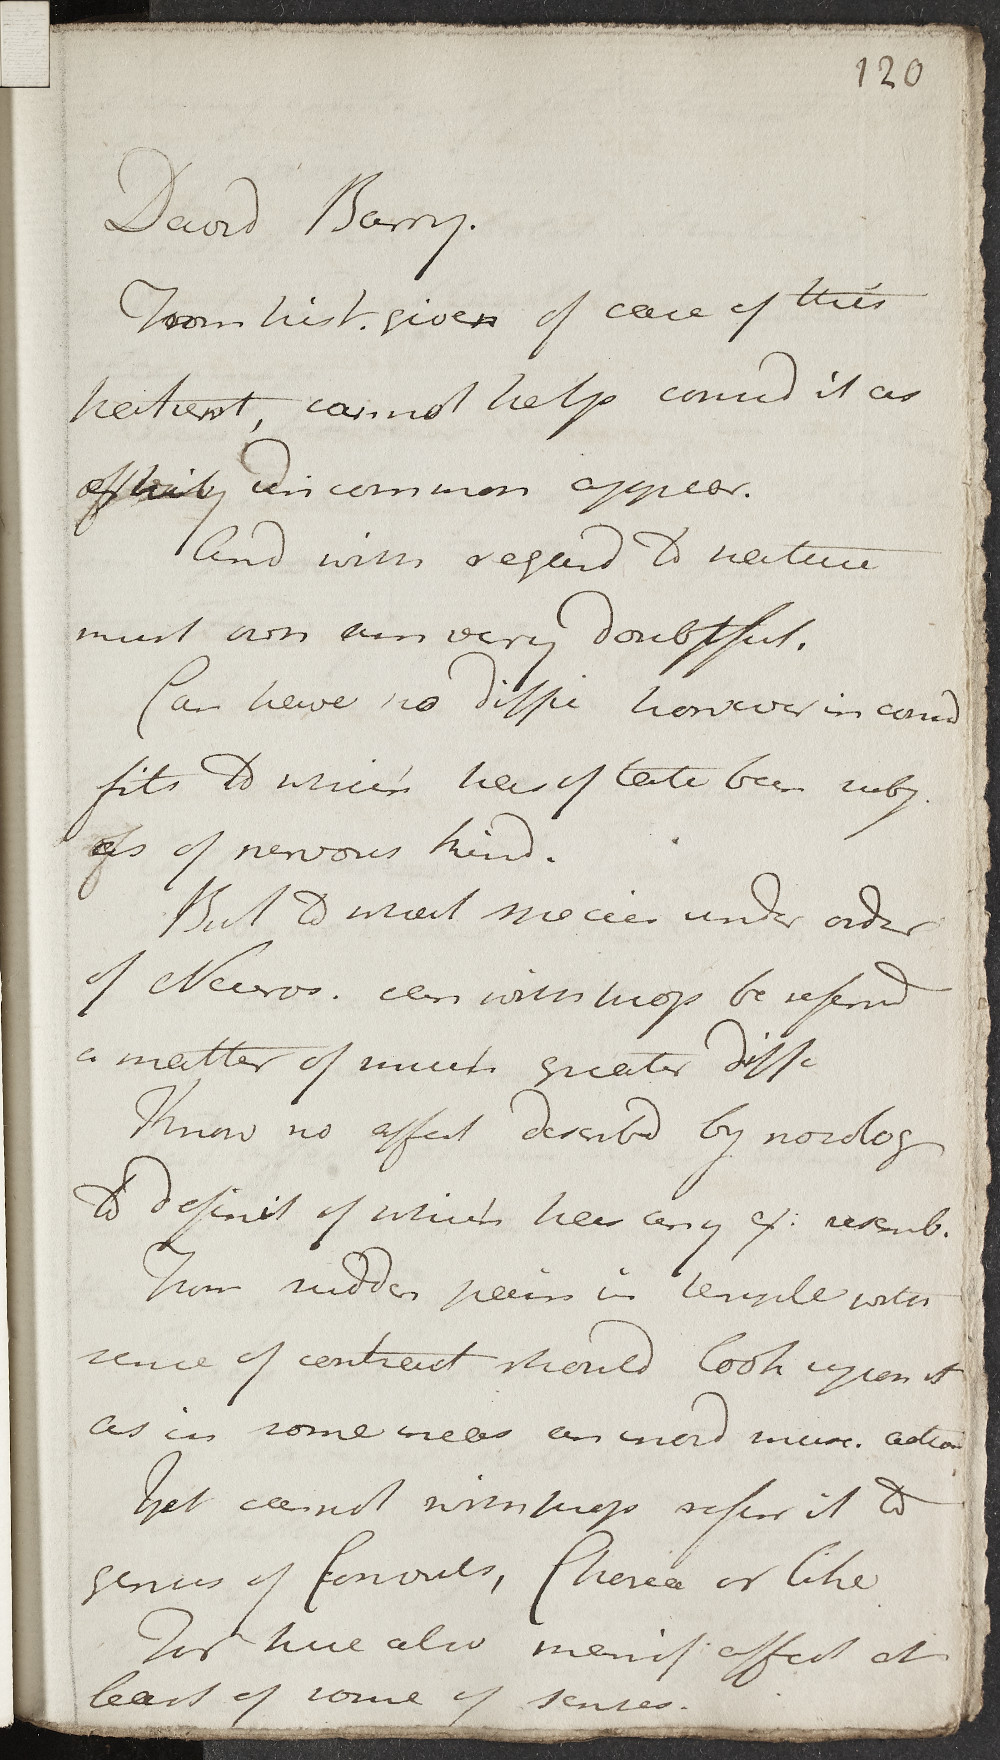 120
David Barry.
From hist. given of case of this
patient, cannot help consid it as
of uncommon appear.
And with regard to nature
must own am very doubtful.
Can have no diffic however in consid
fits to which has of late been subj.
as of nervous kind.
But to what species under order
of Neuros. can with prop be referrd
a matter of much greater diffic
Know no affect describd by nosolog
to definit of which has any resemb.
From sudden pain in temple with
sense of contract should look upon it
as in some meas an inord musc. action
Yet cannot with prop refer it to
genus of Convuls, Chorea or like
For here also manif affect at
least of some of senses.